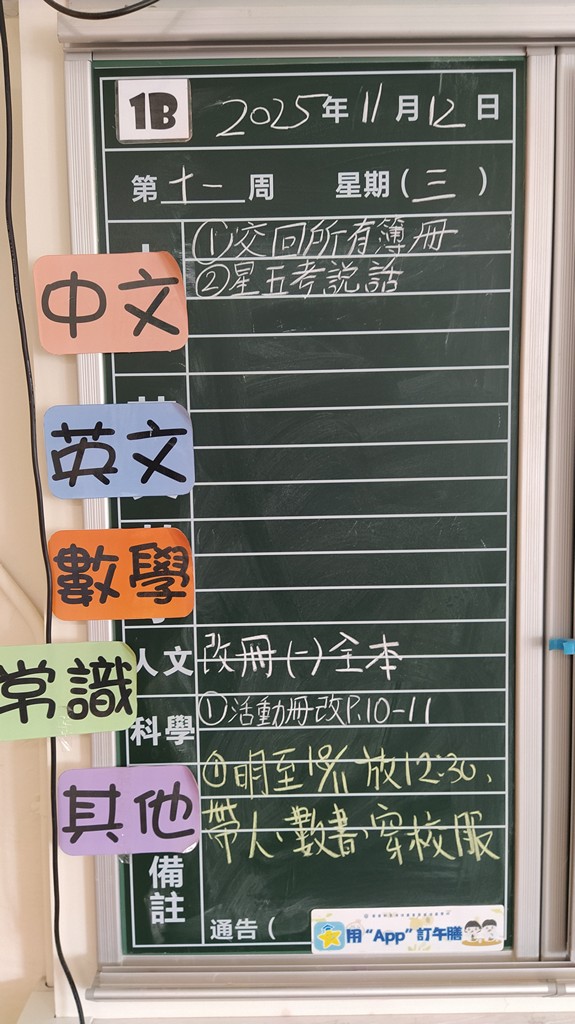 1B 2025年11月12日
第十一周 星期(三)
①交回所有簿冊
中文 ②星五考說話
英文
數學
人文 改冊(二)全本
常識
科學 ①活動冊改P.10-11
①明至19/11放12:30、
其他 帶人、數書、穿校服
備註
通告(
用“App”訂午膳